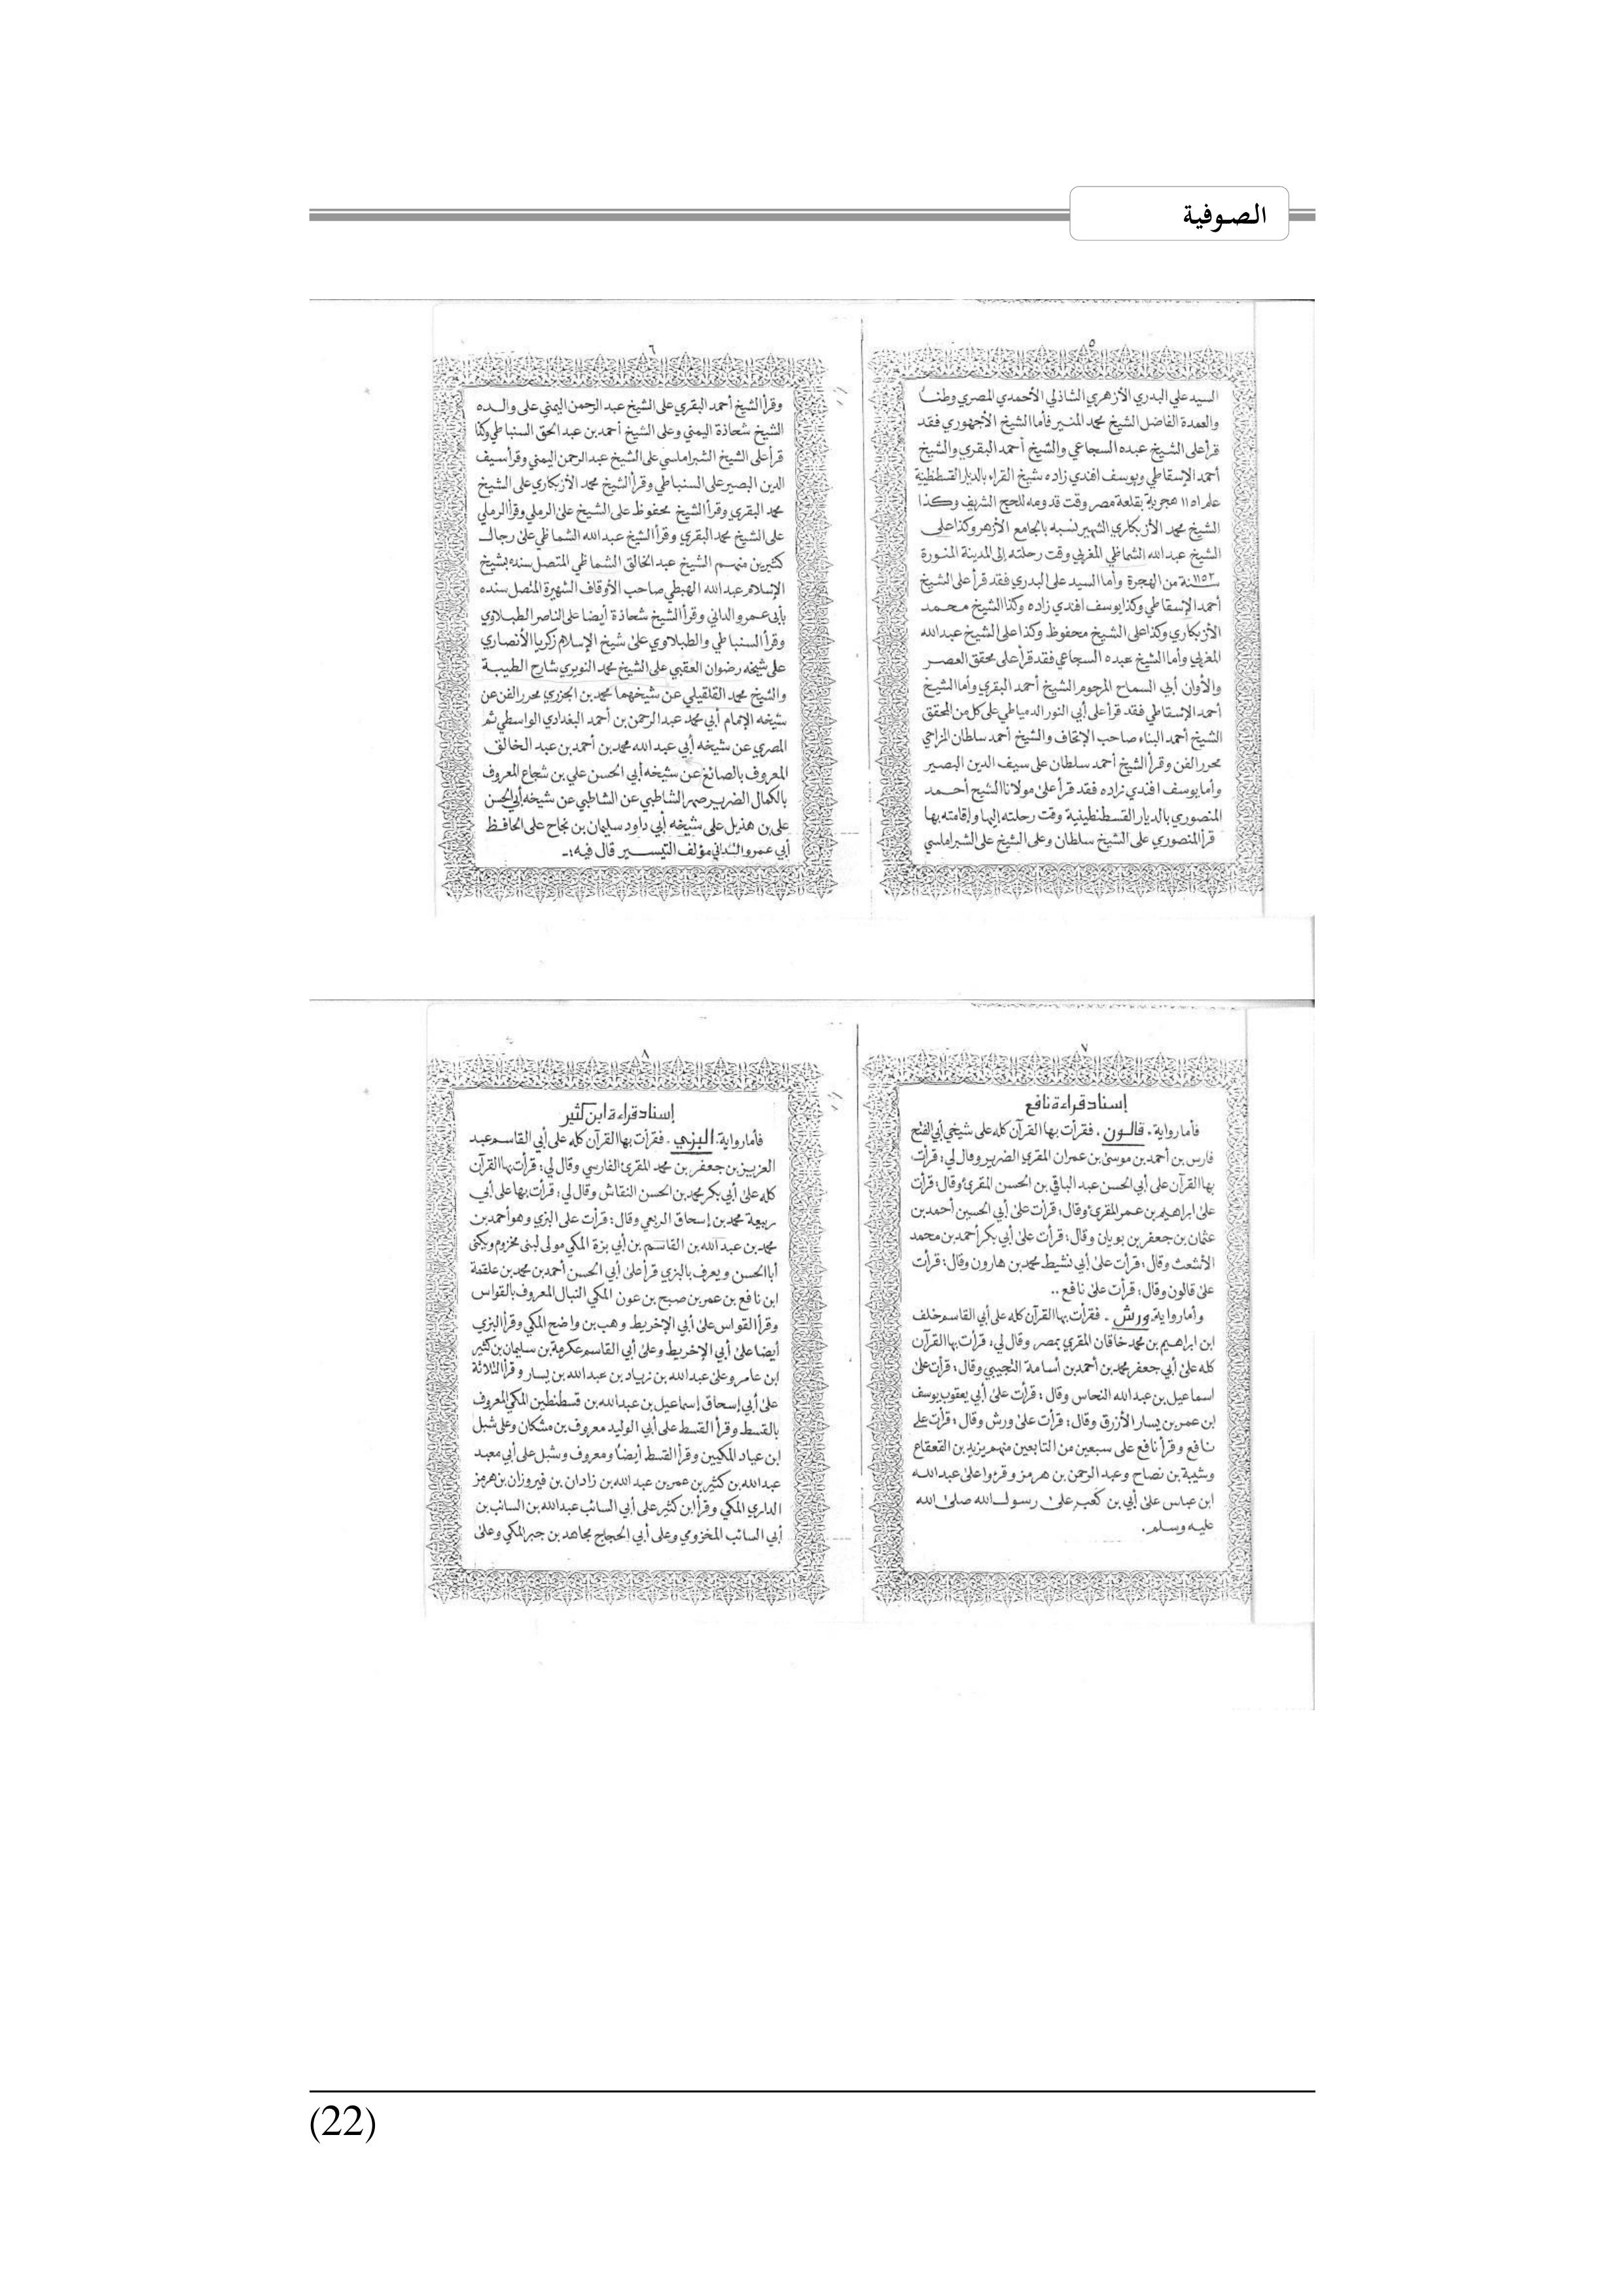 الصوفية
٥
السيد علي البدري الأزهري الشاذلي الأحمدي المصري وطنا
والعمدة الفاضل الشيخ محمد المنير فأما الشيخ الأجهوري فقد
قرأ على الشيخ عبده السجاعي والشيخ أحمد البقري والشيخ
أحمد الإسقاطي ويوسف افندي زاده شيخ القراء بالديار القسطنطينية
عام ١١٥١ هجرية بقلعة مصر وقت قدومه للحج الشريف وكذا
الشيخ محمد الأزبكاري الشهير نسبه بالجامع الأزهر وكذا على
الشيخ عبد الله الشماظي المغربي وقت رحلته إلى المدينة المنورة
سنة ١١٥٢ من الهجرة وأما السيد على البدري فقد قرأ على الشيخ
أحمد الإسقاطي وكذا يوسف افندي زاده وكذا الشيخ محمد
الأزبكاري وكذا على الشيخ محفوظ وكذا على الشيخ عبدالله
المغربي وأما الشيخ عبده السجاعي فقد قرأ على محقق العصر
والأوان أبي السماح المرحوم الشيخ أحمد البقري وأما الشيخ
أحمد الإسقاطي فقد قرأ على أبي النور الدمياطي على كل من المحقق
الشيخ أحمد البناء صاحب الإتحاف والشيخ أحمد سلطان المزاحي
محرر الفن وقرأ الشيخ أحمد سلطان على سيف الدين البصير
وأما يوسف افندي زاده فقد قرأ على مولانا الشيخ أحمد
المنصوري بالديار القسطنطينية وقت رحلته إليها وإقامته بها
قرأ المنصوري على الشيخ سلطان وعلى الشيخ على الشبراملسي
٦
وقرأ الشيخ أحمد البقري على الشيخ عبد الرحمن اليمني على والده
الشيخ شحاذة اليمني وعلى الشيخ أحمد بن عبد الحق السنباطي وكذا
قرأ على الشيخ الشبراملسي على الشيخ عبد الرحمن اليمني وقرأ سيف
الدين البصير على السنباطي وقرأ الشيخ محمد الأزبكاري على الشيخ
محمد البقري وقرأ الشيخ محفوظ على الشيخ على الرملي وقرأ الرملي
على الشيخ محمد البقري وقرأ الشيخ عبد الله الشماظي على رجال
كثيرين منهم الشيخ عبد الخالق الشماظي المتصل سنده بشيخ
الإسلام عبد الله الهبطي صاحب الأوقاف الشهيرة المتصل سنده
بأبي عمرو الداني وقرأ الشيخ شحاذة أيضا على الناصر الطبلاوي
وقرأ السنباطي والطبلاوي على شيخ الإسلام زكريا الأنصاري
على شيخه رضوان العقبي على الشيخ محمد النويري شارح الطيبة
والشيخ محمد القلقيلي عن شيخهما محمد بن الجزري محرر الفن عن
شيخه الإمام أبي محمد عبد الرحمن بن أحمد البغدادي الواسطي ثم
المصري عن شيخه أبي عبد الله محمد بن أحمد بن عبد الخالق
المعروف بالصائغ عن شيخه أبي الحسن علي بن شجاع المعروف
بالكمال الضرير صهر الشاطبي عن الشاطبي عن شيخه أبي الحسن
على بن هذيل على شيخه أبي داود سليمان بن نجاح على الحافظ
أبي عمرو الداني مؤلف التيسير قال فيه :-
٧
إسناد قراءة نافع
فأما رواية . قالون . فقرأت بها القرآن كله على شيخي أبي الفتح
فارس بن أحمد بن موسى بن عمران المقري الضرير وقال لي : قرأت
بها القرآن على أبي الحسن عبد الباقي بن الحسن المقرئ وقال : قرأت
على ابراهيم بن عمر المقرئ وقال : قرأت على أبي الحسين أحمد بن
عثمان بن جعفر بن بويان وقال : قرأت على أبي بكر أحمد بن محمد
الأشعث وقال : قرأت على أبي نشيط محمد بن هارون وقال : قرأت
على قالون وقال : قرأت على نافع ..
وأما رواية . ورش . فقرأت بها القرآن كله على أبي القاسم خلف
ابن ابراهيم بن محمد خاقان المقري بمصر وقال لي : قرأت بها القرآن
كله على أبي جعفر محمد بن أحمد بن أسامة التجيبي وقال : قرأت على
اسماعيل بن عبد الله النحاس وقال : قرأت على أبي يعقوب يوسف
ابن عمر بن يسار الأزرق وقال : قرأت على ورش وقال : قرأت على
نافع وقرأ نافع على سبعين من التابعين منهم يزيد بن القعقاع
وشيبة بن نصاح وعبد الرحمن بن هرمز وقرؤا على عبد الله
ابن عباس على أبي بن كعب على رسول الله صلى الله
عليه وسلم .
٨
إسناد قراءة ابن كثير
فأما رواية . البزي . فقرأت بها القرآن كله على أبي القاسم عبد
العزيز بن جعفر بن محمد المقرئ الفارسي وقال لي : قرأت بها القرآن
كله على أبي بكر محمد بن الحسن النقاش وقال لي : قرأت بها على أبي
ربيعة محمد بن إسحاق الربعي وقال : قرأت على البزي وهو أحمد بن
محمد بن عبد الله بن القاسم بن أبي بزة المكي مولى لبنى مخزوم ويكنى
أبا الحسن ويعرف بالبزي قرأ على أبي الحسن أحمد بن محمد بن علقمة
ابن نافع بن عمر بن صبح بن عون المكي النبال المعروف بالقواس
وقرأ القواس على أبي الإخريط وهب بن واضح المكي وقرأ البزي
أيضا على أبي الإخريط وعلى أبي القاسم عكرمة بن سليمان بن كثير
ابن عامر وعلى عبد الله بن زياد بن عبد الله بن يسار وقرأ الثلاثة
على أبي إسحاق إسماعيل بن عبد الله بن قسطنطين المكي المعروف
بالقسط وقرأ القسط على أبي الوليد معروف بن مشكان وعلى شبل
ابن عباد المكيين وقرأ القسط أيضا ومعروف وشبل على أبي معبد
عبد الله بن كثير بن عمر بن عبد الله بن زادان بن فيروزان بن هرمز
الداري المكي وقرأ ابن كثير على أبي السائب عبد الله بن السائب بن
أبي السائب المخزومي وعلى أبي الحجاج مجاهد بن جبر المكي وعلى
(22)